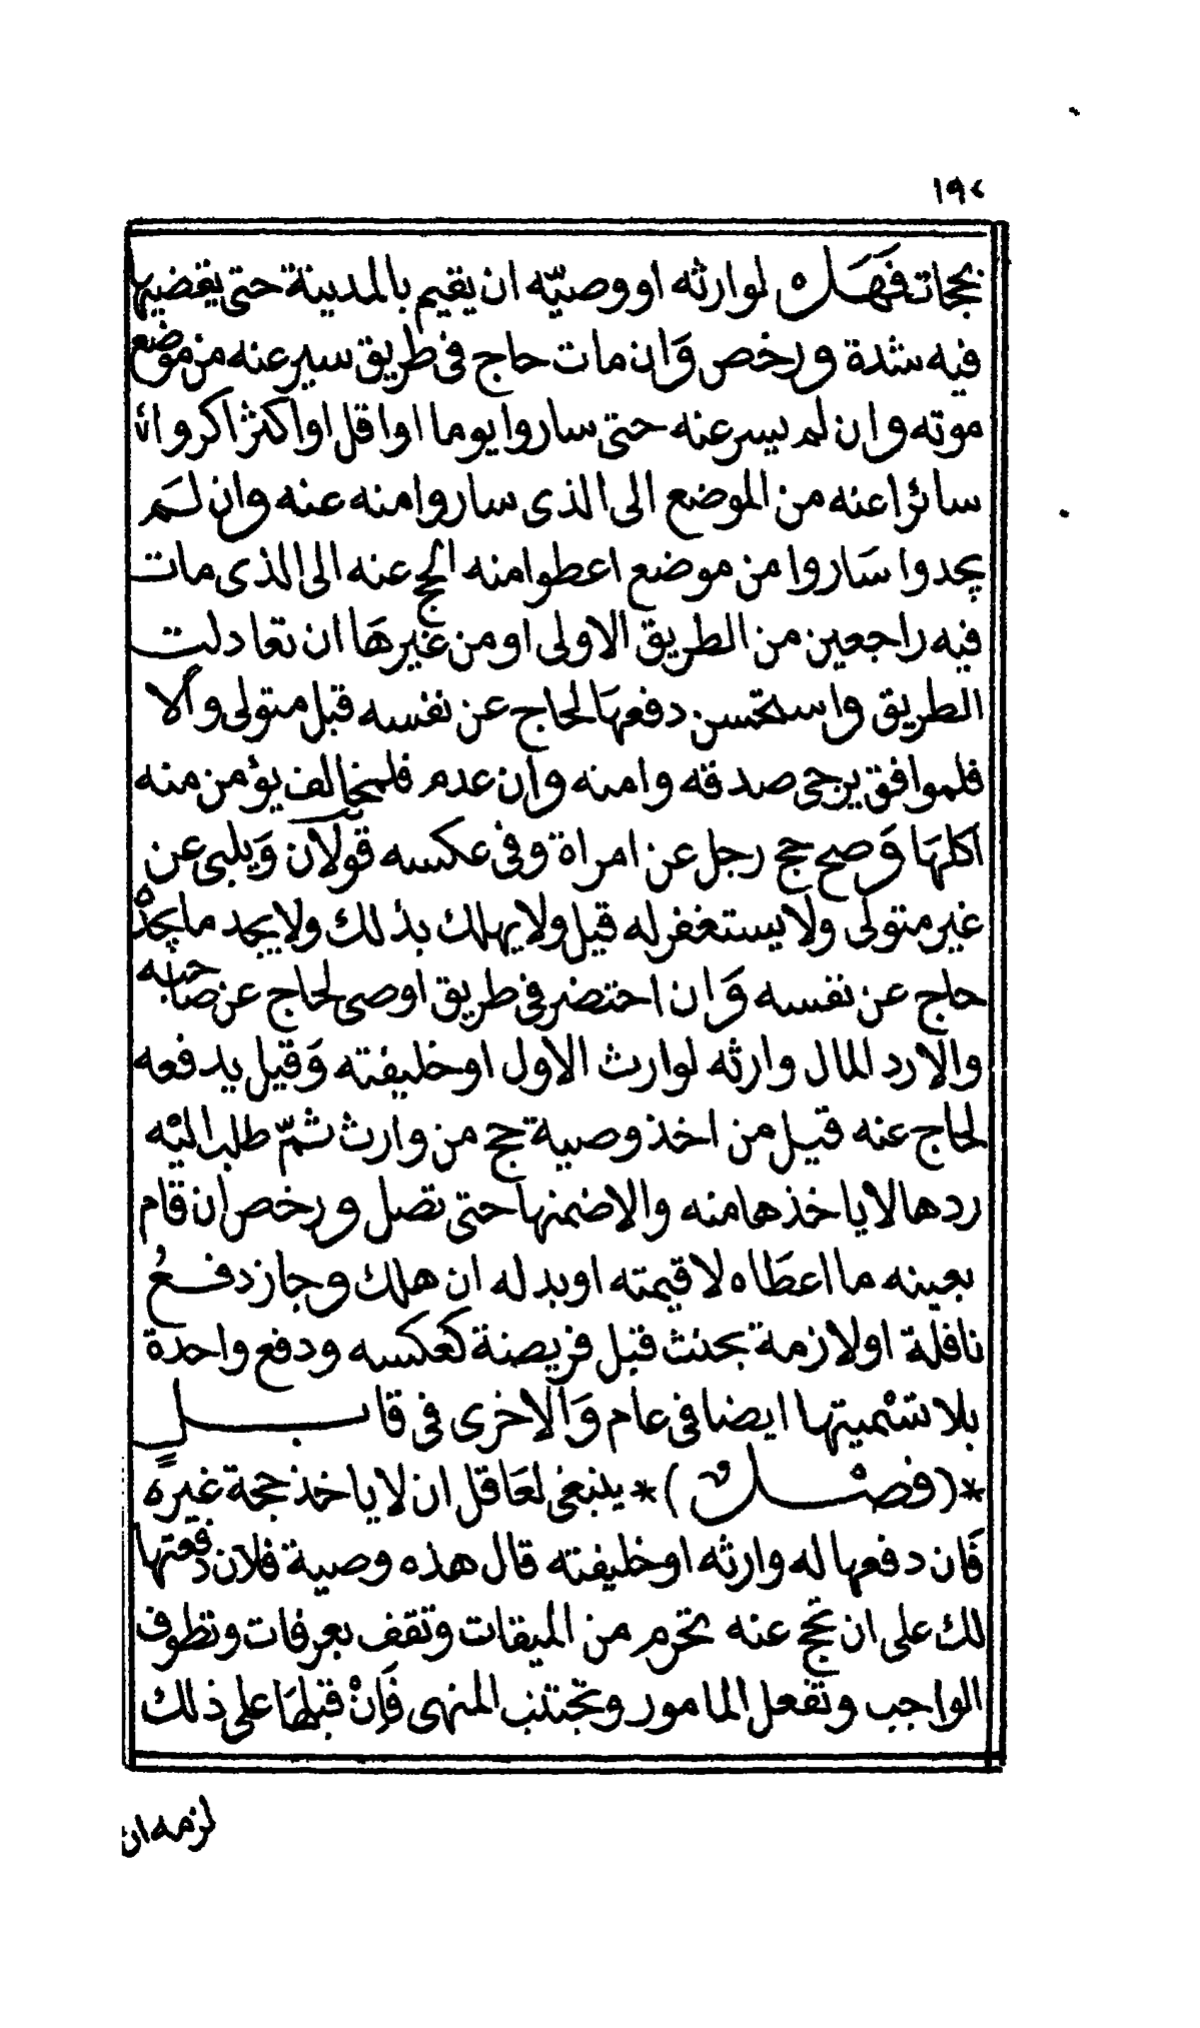 ١٩٢
بحجات فَهَل لوارثه او وصيّه ان يقيم بالمدينة حتى يقضيها
فيه شدة ورخص وَان مات حاج فى طريق سير عنه من موضع
موته وان لم يسر عنه حتى ساروا يوما او اقل او اكثر اكروا
سائرا عنه من الموضع الى الذى ساروا منه عنه وان لَم
يجدوا سَاروا من موضع اعطوا منه الحج عنه الى الذى مات
فيه راجعين من الطريق الاولى او من غيرهَا ان تعادلت
الطريق واستحسن دفعهَا لحاج عن نفسه قبل متولى والا
فلموافق يرجى صدقه وامنه وان عدم فلمخالف يؤمن منه
اكلهَا وَصح حج رجل عن امراة وفى عكسه قولان وَيلبى عن
غير متولى ولا يستغفر له قيل ولا يهلك بذلك ولا يجد ما يجدْه
حاج عن نفسه وَان احتضر فى طريق اوصى لحاج عن صاحبه
والا رد المال وارثه لوارث الاول او خليفته وَقيل يدفعه
لحاج عنه قيل من اخذ وصية حج من وارث ثمّ طلب اليْه
ردها لا ياخذها منه والا ضمنها حتى تصل ورخص ان قام
بعينه ما اعطَاه لا قيمته او بدله ان هلك وجاز دفعُ
نافلة او لازمة بحنث قبل فريضة كعكسه ودفع واحدة
بلا تسْميتها ايضا فى عام وَالاخرى فى قابلٍ
*(فصْل)* ينبغى لعَاقل ان لا ياخذ حجة غيرِه
فَان دفعها له وارثه او خليفته قال هذه وصية فلان دفعتها
لك على ان تحج عنه تحرم من الميقات وتقف بعرفات وتطوف
الواجب وتفعل المامور وتجتنب المنهى فَاِنْ قبلهَا على ذلك
لزمه ان